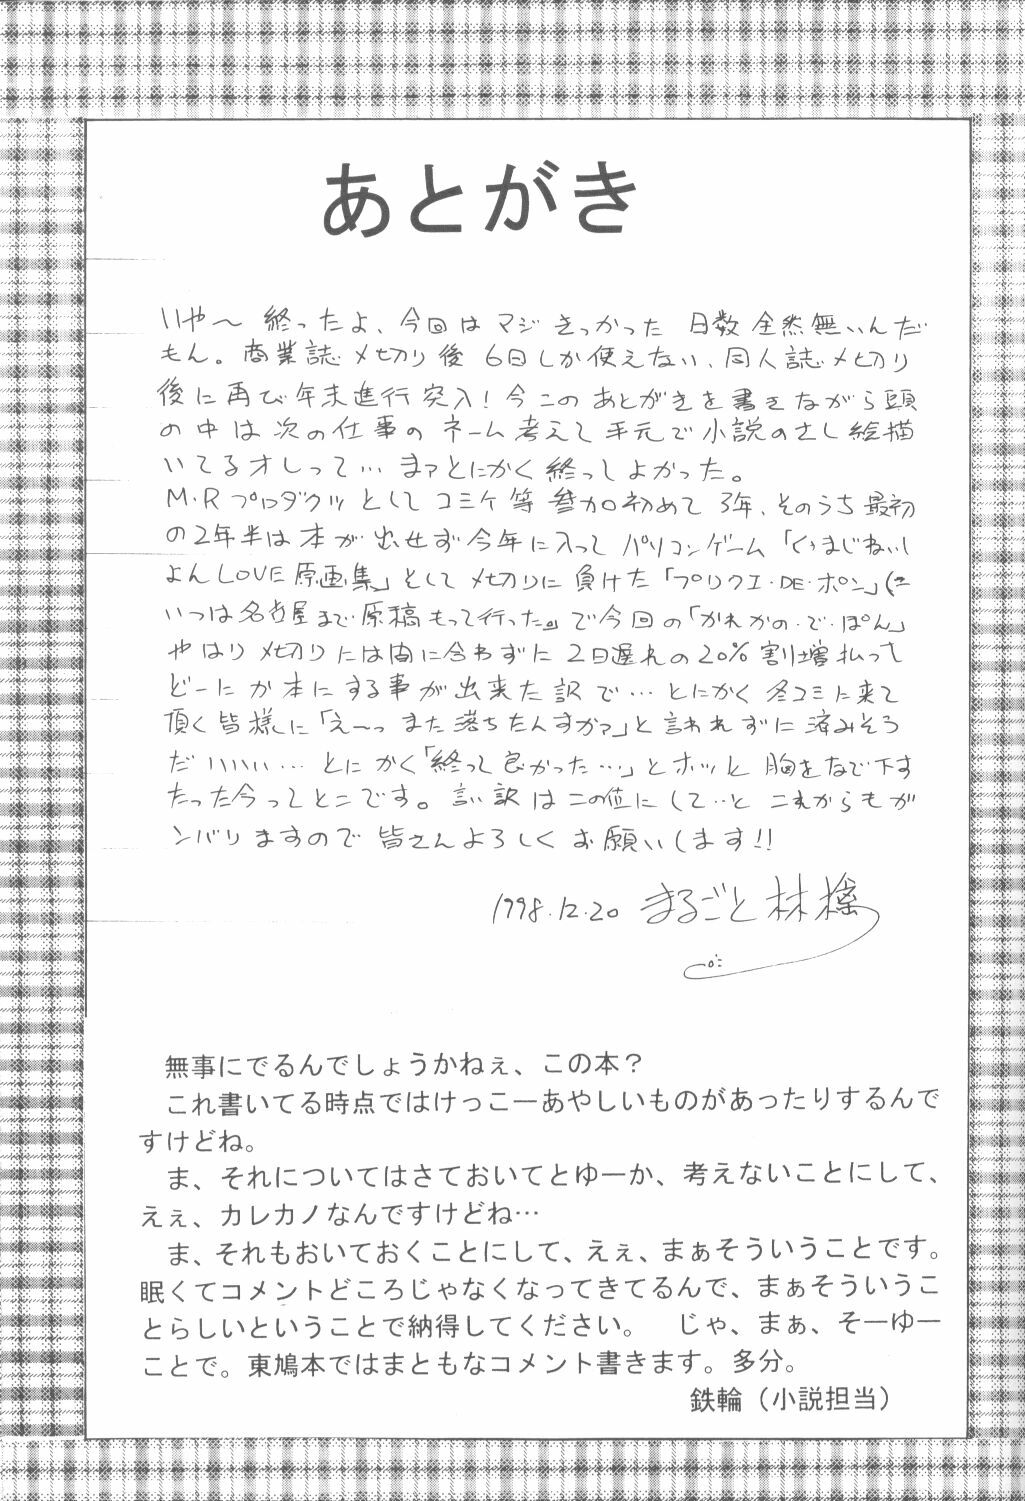 あとがき
いや～ 終ったよ、今回は マジ きっかった 日数 全然無いんだ
もん。商業誌〆切り後 6日しか使えない、同人誌〆切り
後に再び年末進行突入！今このあとがきを書きながら頭
の中は次の仕事のネーム考えて手元で小説のさし絵描
いてるオレって… まァとにかく終ってよかった。
M・Rプロダクツとしてコミケ等参加初めて3年、そのうち最初
の2年半は本が出せず今年に入ってパソコンゲーム「くりまじねいし
よんLOVE原画集」として〆切りに負けた「プリクエ・DE・ポン」(こ
いつは名古屋まで原稿もって行った。)で今回の「かれかの・で・ぽん」
やはり〆切りには間に合わずに2日遅れの20%割増払って
どーにか本にする事が出来た訳で… とにかく冬コミに来て
頂く皆様に「え～っまた落ちたんすかァ」と言われずに済みそう
だいいいい… とにかく「終って良かった…」とホッと胸をなで下す
たった今ってとこです。言い訳はこの位にして…と これからもガ
ンバリますので皆さんよろしくお願いします!!
1998.12.20 まるごと林檎
無事にでるんでしょうかねぇ、この本？
これ書いてる時点ではけっこーあやしいものがあったりするんで
すけどね。
ま、それについてはさておいてとゆーか、考えないことにして、
えぇ、カレカノなんですけどね…
ま、それもおいておくことにして、えぇ、まぁそういうことです。
眠くてコメントどころじゃなくなってきてるんで、まぁそういうこ
とらしいということで納得してください。　じゃ、まぁ、そーゆー
ことで。東鳩本ではまともなコメント書きます。多分。
鉄輪（小説担当）